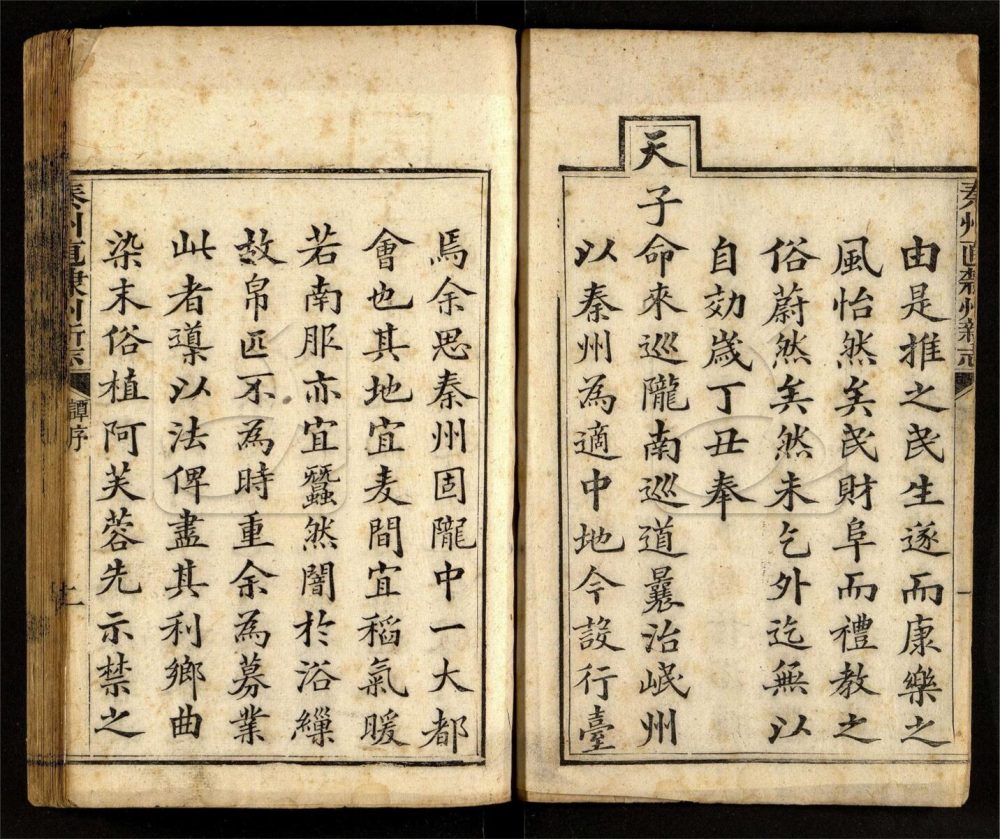 秦州直隸州新志
由是推之民生遂而康樂之
風怡然矣民財阜而禮教之
俗蔚然矣然未乞外迄無以
自効歲丁丑奉
天子命來巡隴南巡道曩治岷州
以秦州為適中地今設行臺
焉余思秦州固隴中一大都
會也其地宜麦間宜稻氣暖
若南服亦宜蠶然闇於浴繅
故帛匹不為時重余為募業
此者導以法俾盡其利鄉曲
染末俗植阿芙蓉先示禁之
秦州直隸州新志
譚序
二